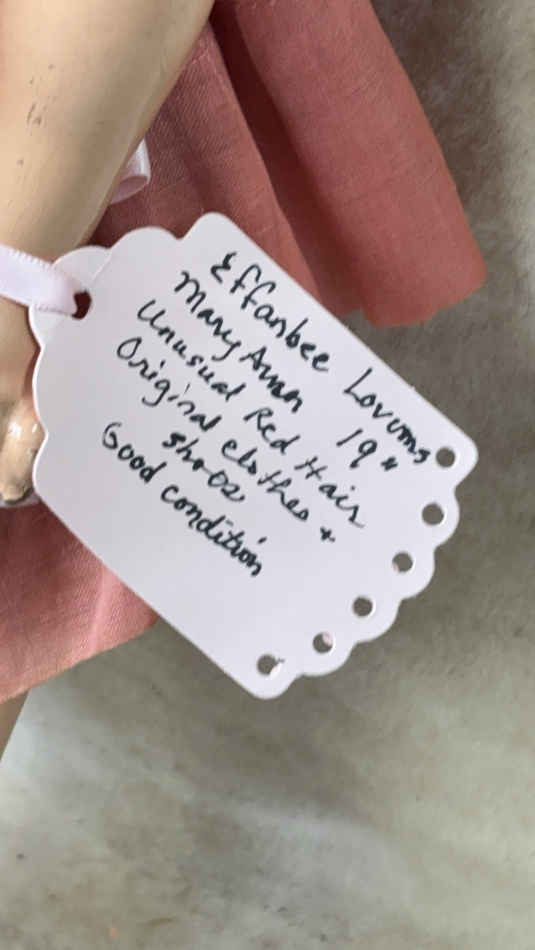 Effanbee Lovums
Mary Ann 19"
Unusual Red Hair
Original Clothes +
shoes
Good condition